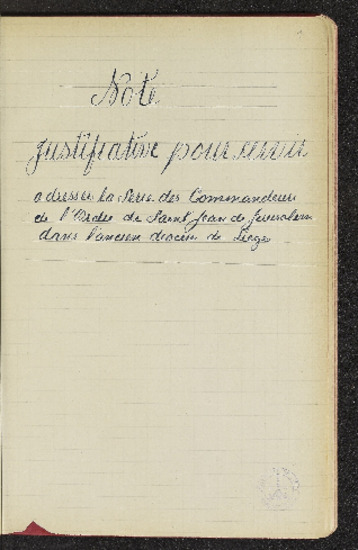 Note
justificative pour servir
a dresser la Série des Commandeurs
de l'Ordre de Saint Jean de Jerusalem
dans l'ancien diocèse de Liège